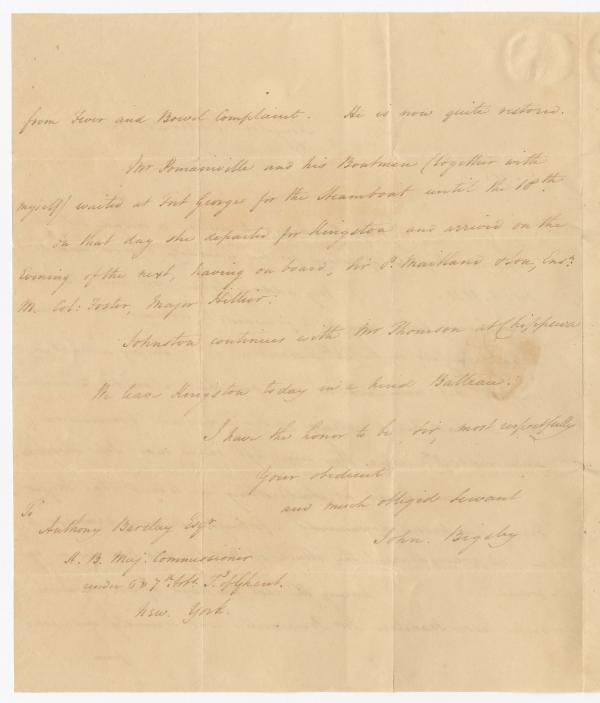 from Fever and Bowel Complaint. He is now quite restored.
Mr Romainville and his Boatmen (together with
myself) waited at Fort George for the Steamboat until the 18th.
In that day she departed for Kingston and arrived on the
Evening of the next, having on board, Sir P. Maitland
Col: Foster, Major Hillier.
Johnston continues with Mr Thomson at Chippewa
We leave Kingston today in a hired Batteau.
I have the honor to be, Sir, most respectfully
Your obedient
and much obliged Servant
John. Bigsby
To
Anthony Barclay Esqr.
H. B. Maj: Commissioner
under 6 & 7th Arts. Ty. of Ghent.
New. York.